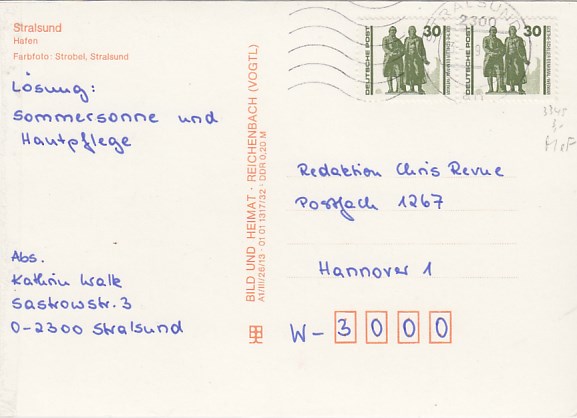 Stralsund
Hafen
Farbfoto: Strobel, Stralsund
Lösung:
Sommersonne und
Hautpflege
Abs.
Kathrin Walk
Sastrowstr. 3
O-2300 Stralsund
BILD UND HEIMAT · REICHENBACH (VOGTL)
A1/III/26/13 · 01 01 1317/32 · DDR 0,20 M
STRALSUND
2300
DEUTSCHE POST
30
DEUTSCHE POST
30
3345
MeF
Redaktion Chris Revue
Postfach 1267
Hannover 1
W- 3 0 0 0